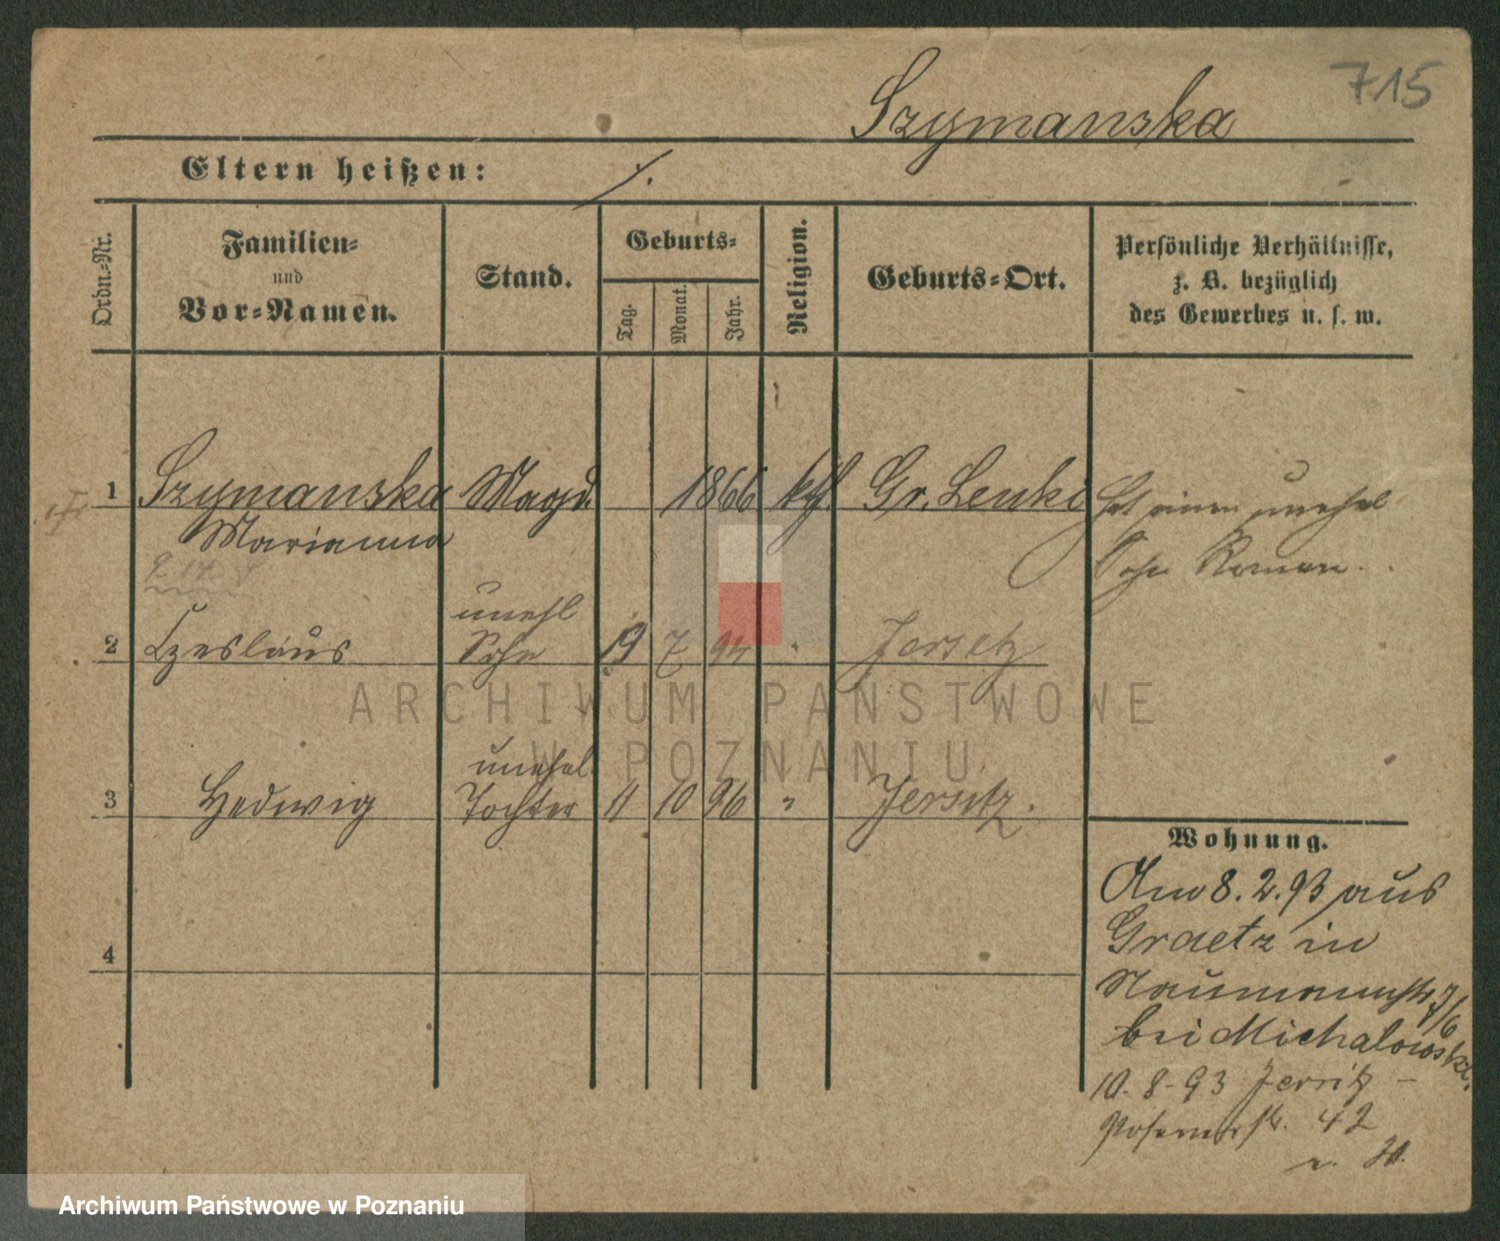 715
Szymanska
Eltern heißen: ./.
Ordn.-Nr.
Familien-
und
Vor-Namen.
Stand.
Geburts-
Tag.
Monat.
Jahr.
Religion.
Geburts-Ort.
Persönliche Verhältnisse,
z. B. bezüglich
des Gewerbes u. s. w.
1 Szymanska Magd. 1866 kth. Gr. Lenki hat einen unehel
Marianna Sohn Roman.
unehl
2 Czeslaus Sohn 19 7 94 " Jersitz
unehel.
3 Hedwig Tochter 11 10 96 " Jersitz.
Wohnung.
4
Am 8.2.93 aus
Graetz in
Naumannstr 7/6
bei Michalowski.
10.8-93 Jersitz -
Posenerstr. 42
ARCHIWUM PAŃSTWOWE
W POZNANIU
Archiwum Państwowe w Poznaniu